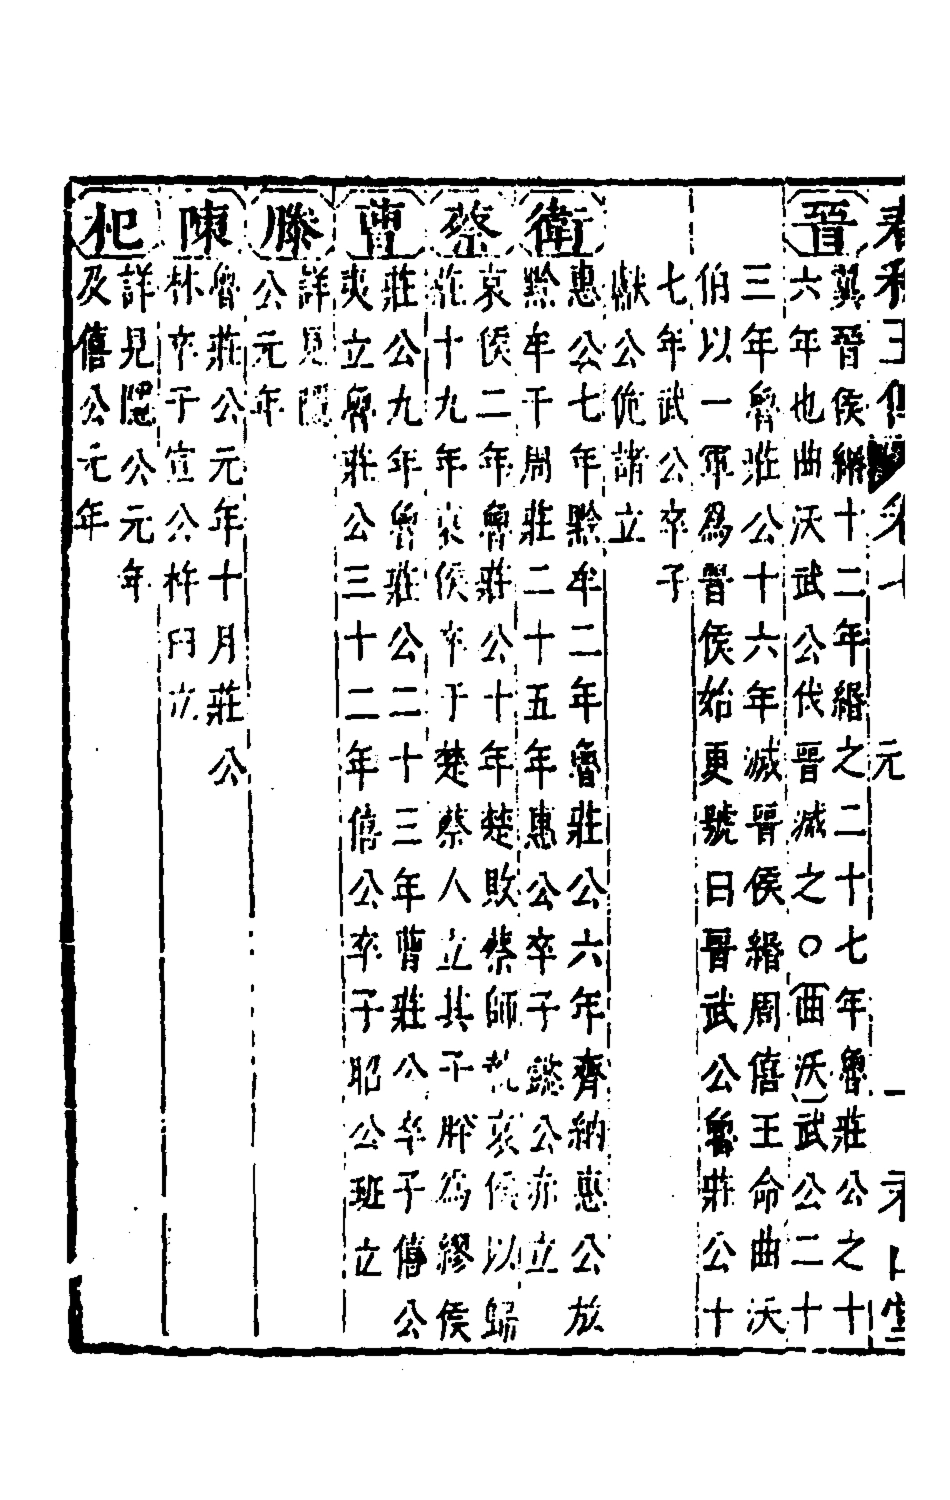 晉
冀晉侯緡十二年緡之二十七年魯莊公之十
六年也曲沃武公伐晉滅之○曲沃武公二十
三年魯莊公十六年滅晉侯緡周僖王命曲沃
伯以一軍爲晉侯始更號曰晉武公魯莊公十
七年武公卒子
獻公佹諸立
衛
惠公七年黔牟二年魯莊公六年齊納惠公放
黔牟于周莊二十五年惠公卒子懿公赤立
蔡
哀侯二年魯莊公十年楚敗蔡師執哀侯以歸
莊十九年哀侯卒于楚蔡人立其子肸爲繆侯
曹
莊公九年魯莊公二十三年曹莊公卒子僖公
夷立魯莊公三十二年僖公卒子昭公班立
滕
詳見隱
公元年
陳
魯莊公元年十月莊公
林卒子宣公杵臼立
杞
詳見隱公元年
及僖公元年